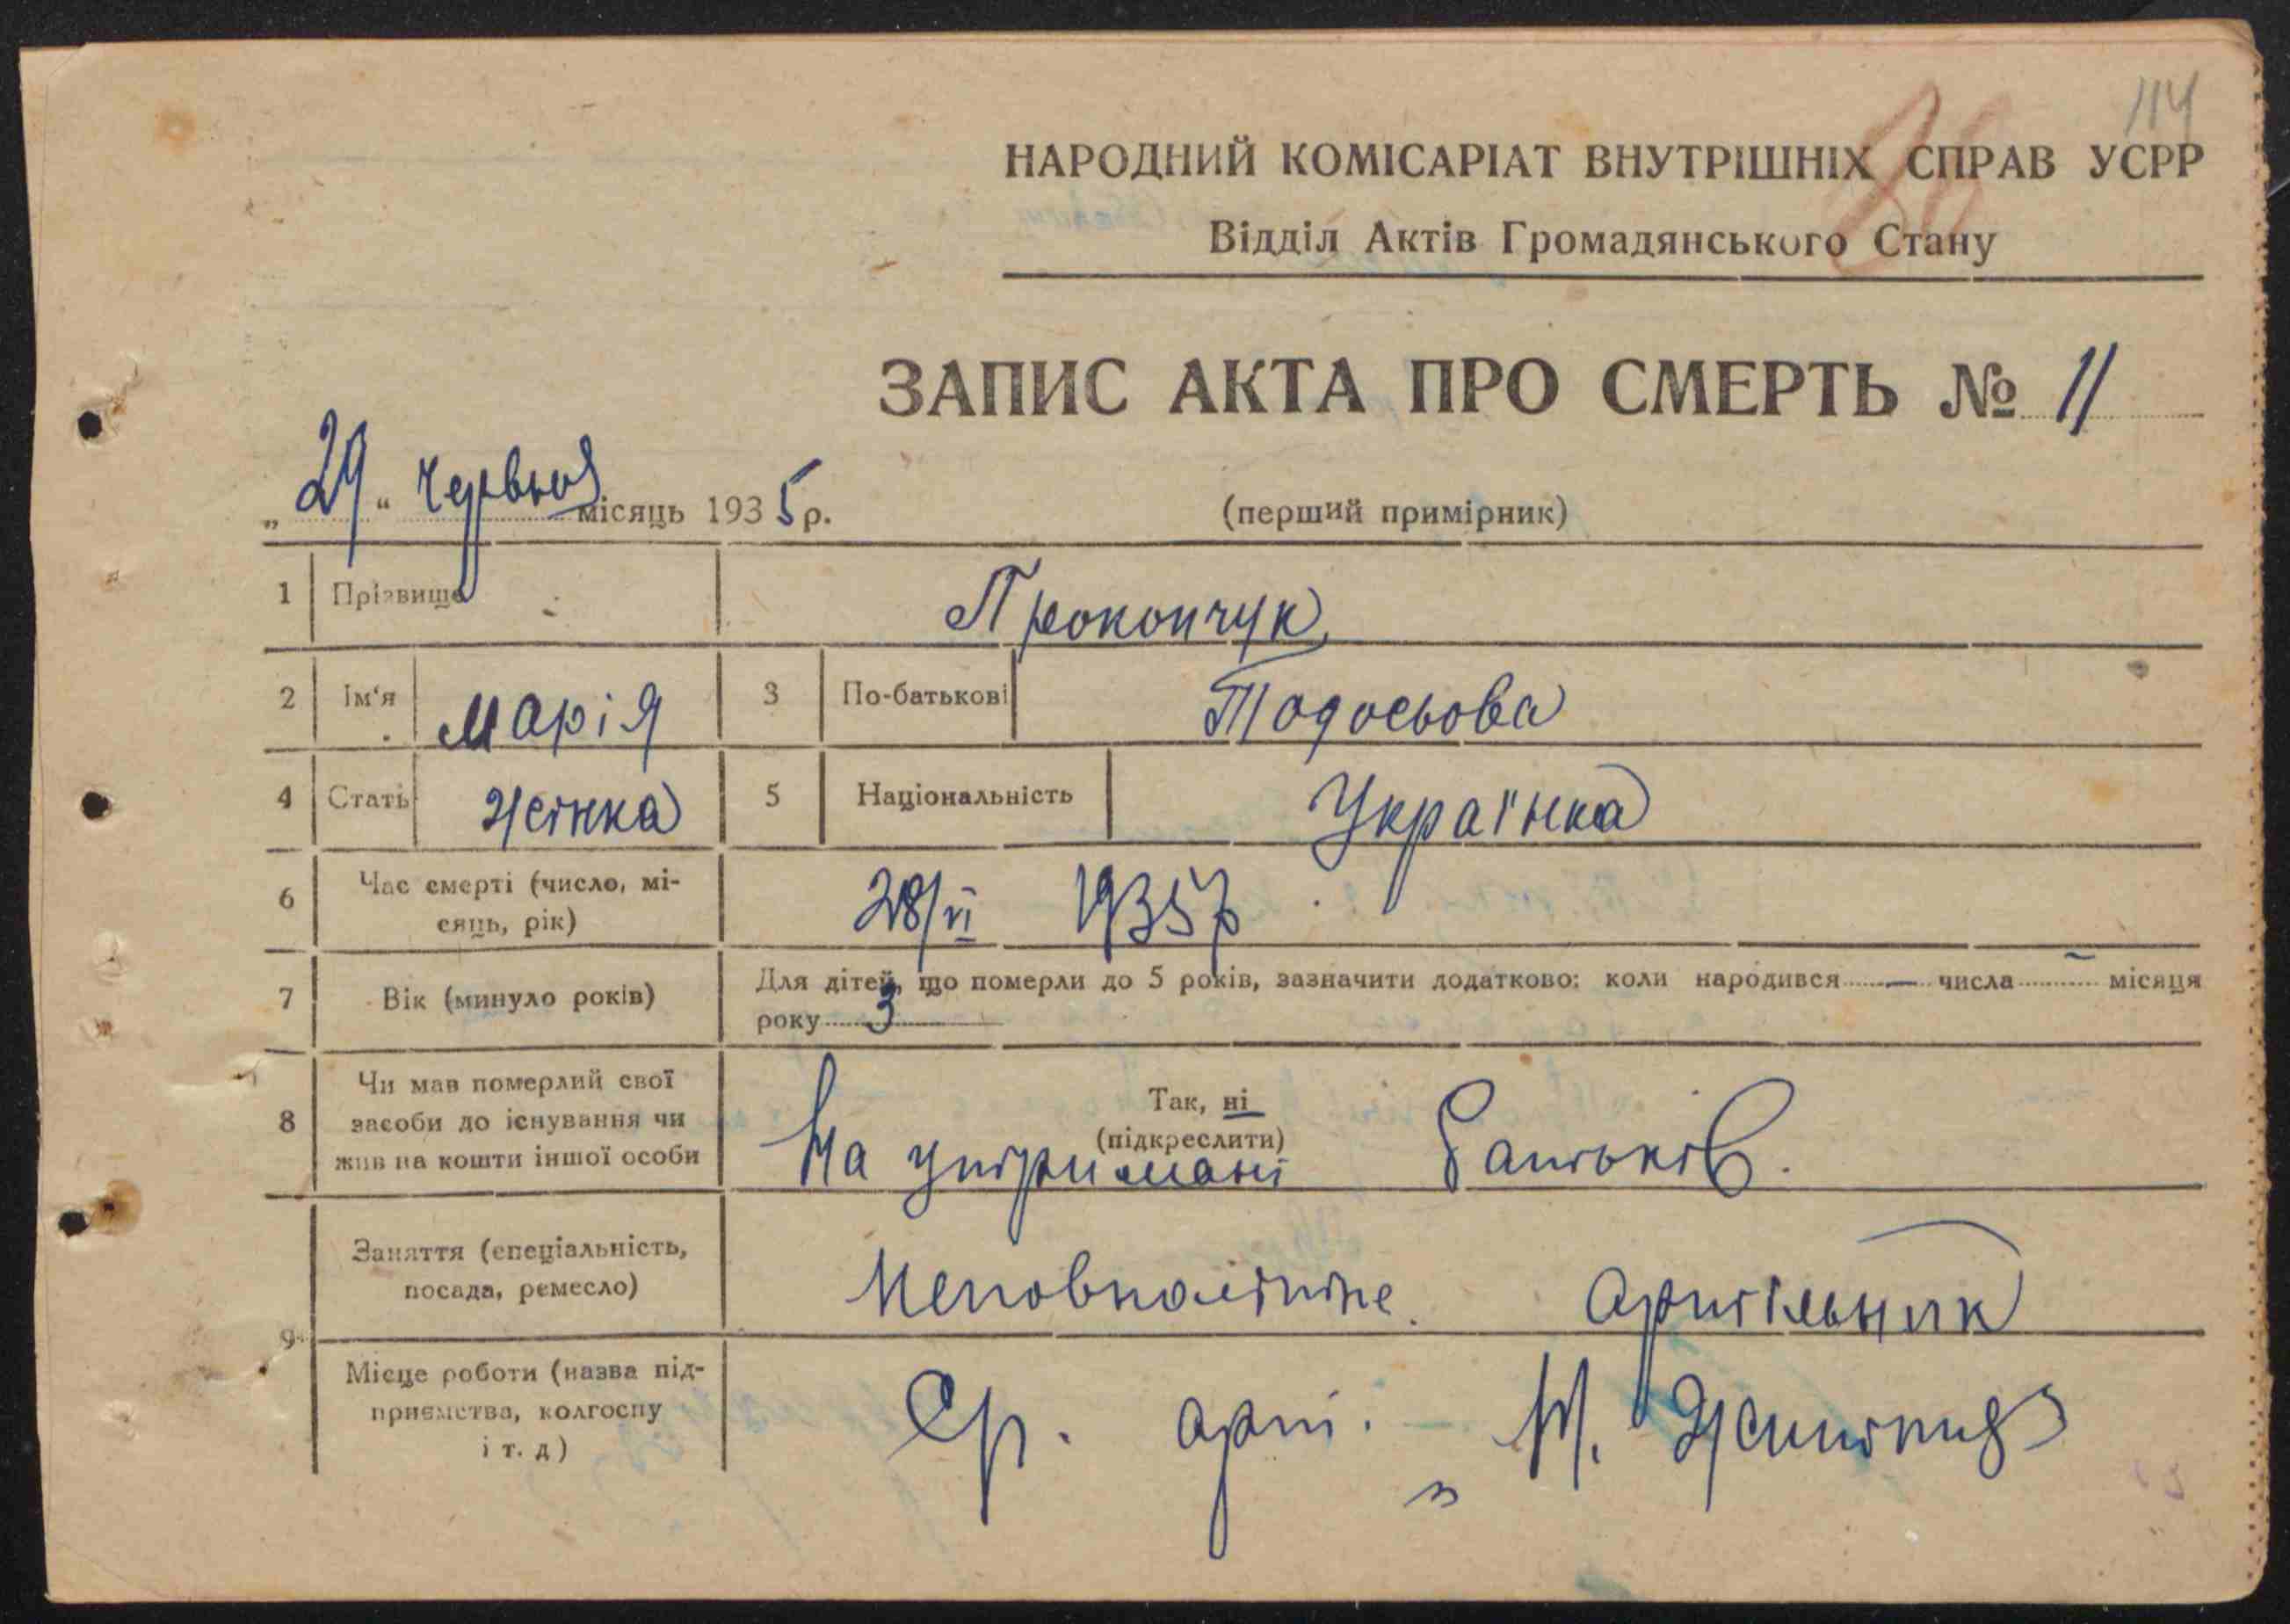 114
НАРОДНИЙ КОМІСАРІАТ ВНУТРІШНІХ СПРАВ УСРР
Відділ Актів Громадянського Стану
ЗАПИС АКТА ПРО СМЕРТЬ № 11
„29“ Червня місяць 1935 р.
(перший примірник)
1 Прізвище Прокопчук
2 Ім'я Марія 3 По-батькові Тодосьова
4 Стать жінка 5 Національність Українка
6 Час смерті (число, мі-
сяць, рік) 28/VI 1935 р
7 Вік (минуло років) Для дітей, що померли до 5 років, зазначити додатково: коли народився — числа — місяця
року 3
8 Чи мав померлий свої
засоби до існування чи
жив на кошти іншої особи
Так, ні
(підкреслити)
На утримані батьків.
9 Заняття (спеціальність,
посада, ремесло) Неповнолітнє. Артільник
Місце роботи (назва під-
приємства, колгоспу
і т. д)
арт.